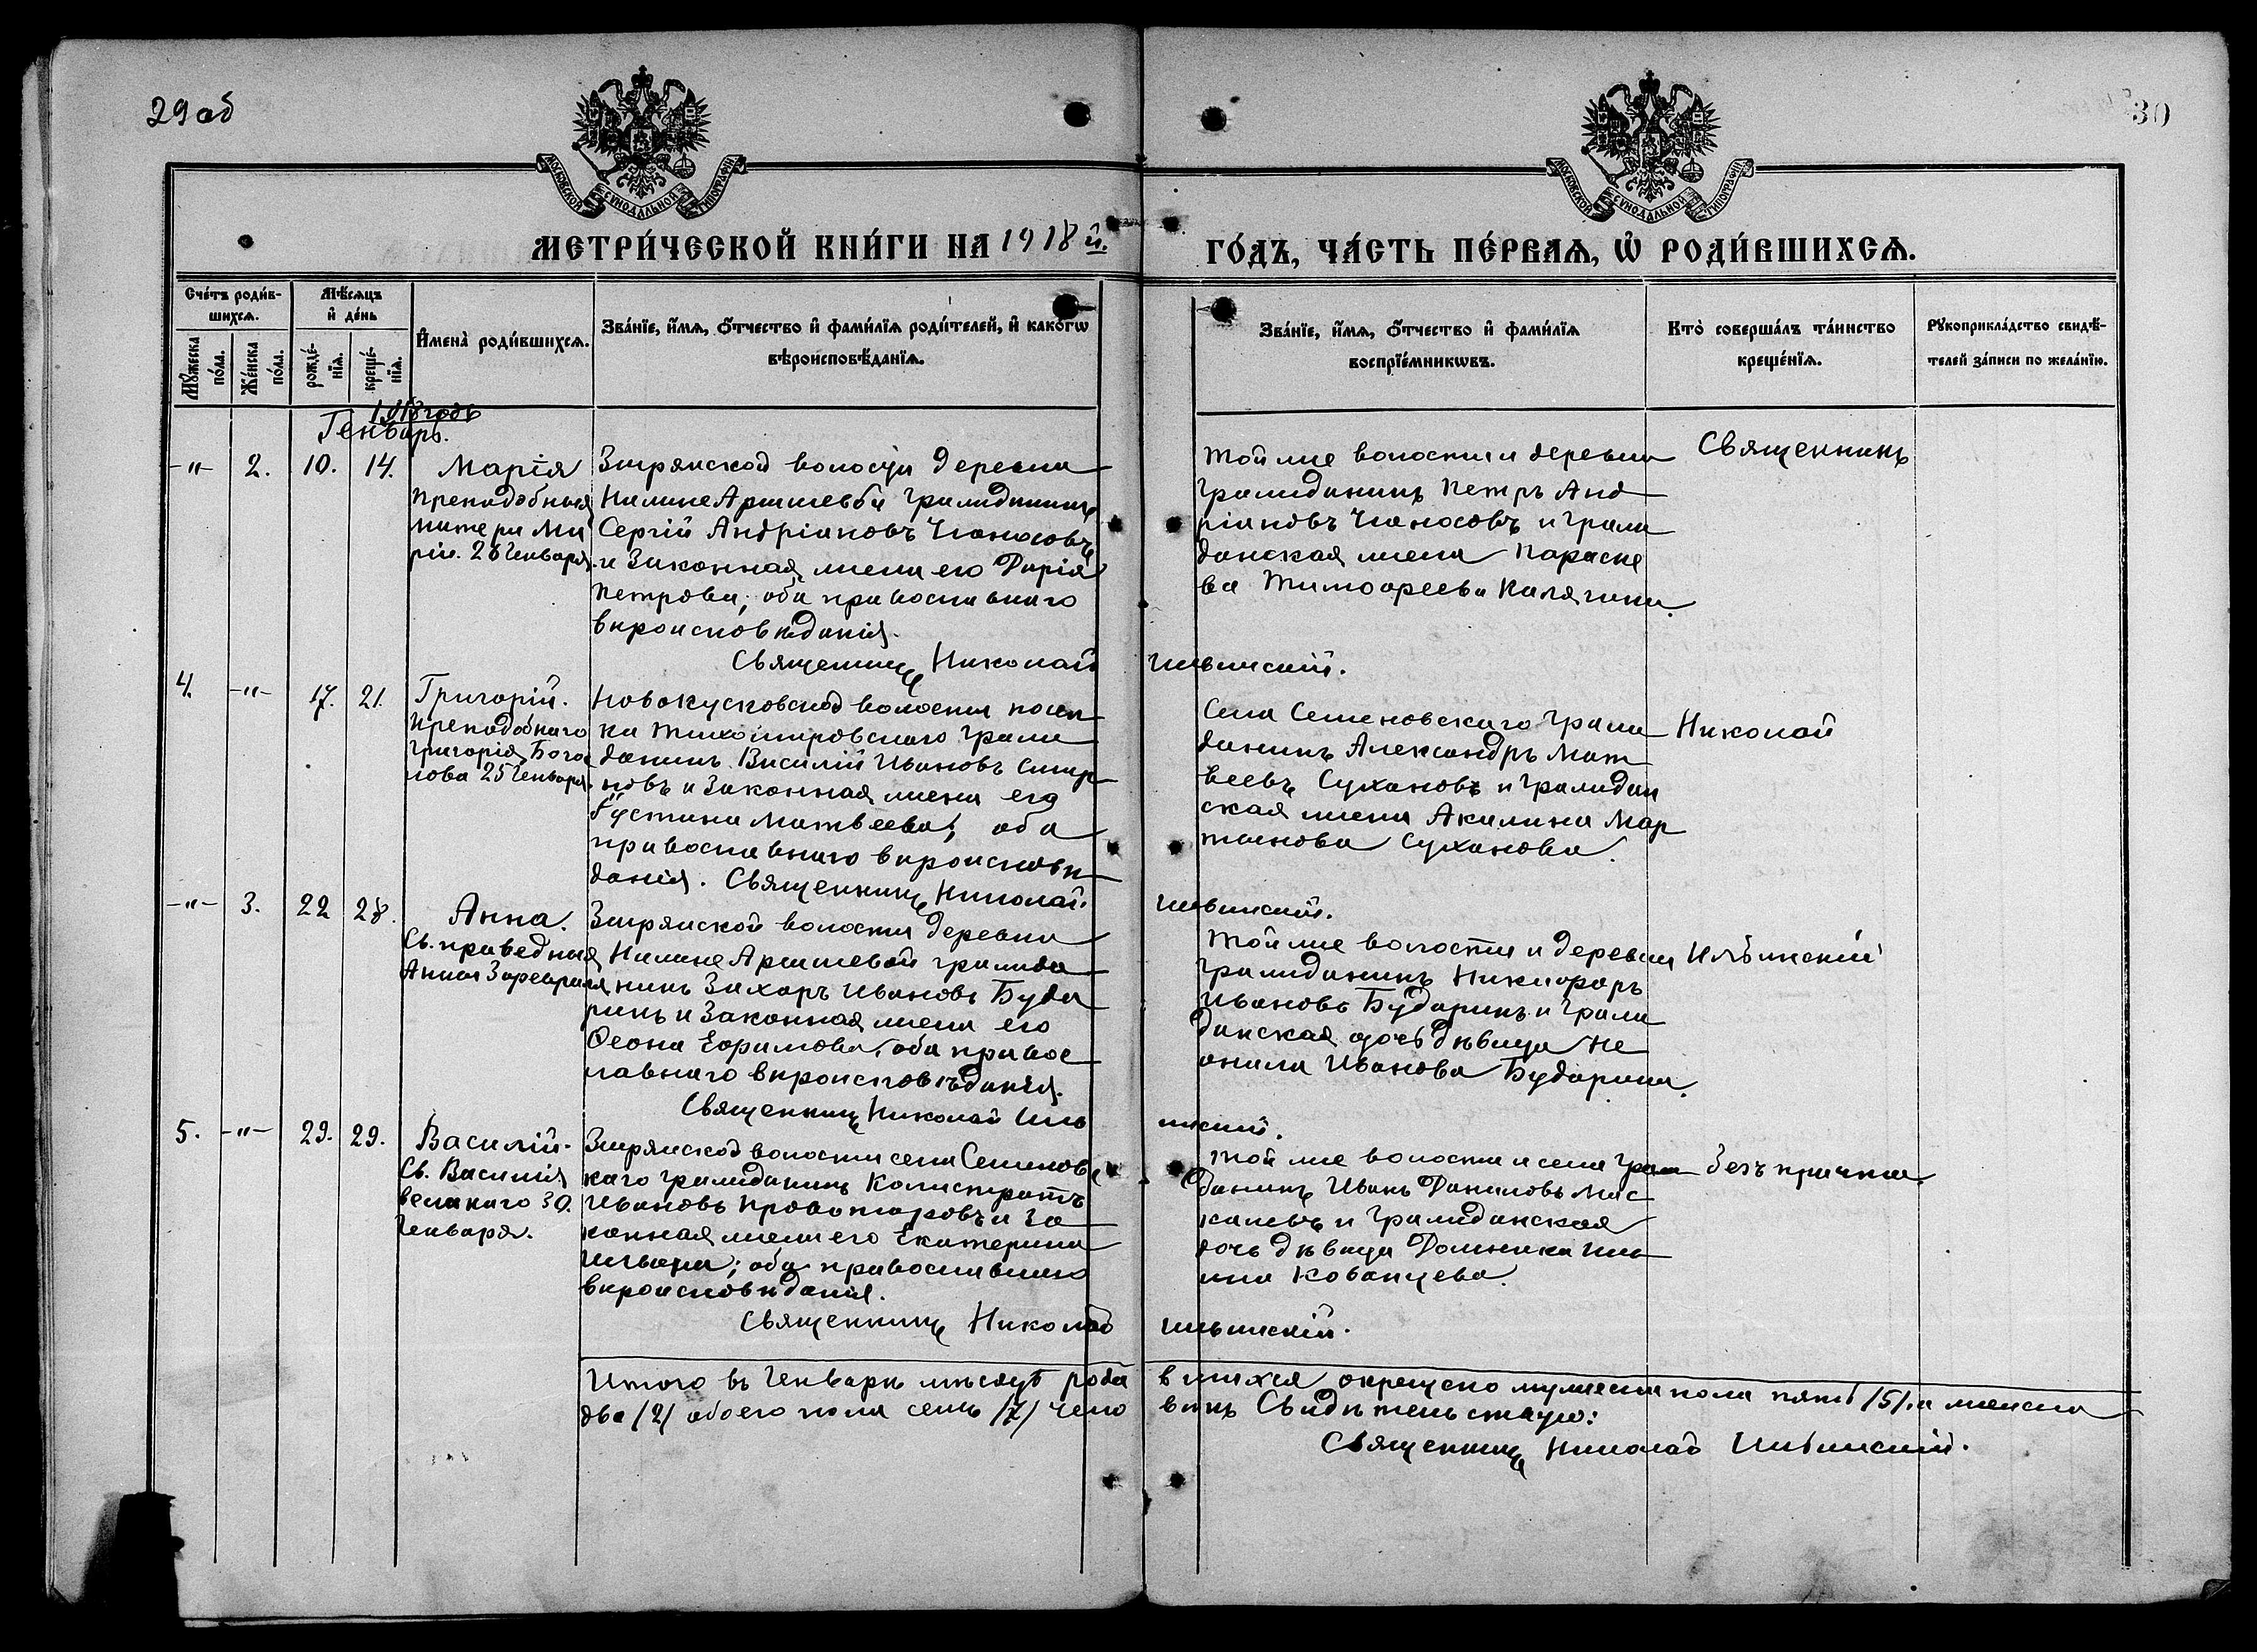 29 об
30
МОСКОВСКОЙ СѴНОДАЛЬНОЙ ТИПОГРАФІИ
МОСКОВСКОЙ СѴНОДАЛЬНОЙ ТИПОГРАФІИ
МЕТРИ́ЧЕСКОЙ КНИ́ГИ НА 1918 й.
ГО́ДЪ, ЧА́СТЬ ПЕ́РВАѦ, Ѡ РОДИ́ВШИХСѦ.
Сче́тъ роди́в-
шихсѧ.
Мѣ́сѧцъ
и҆ де́нь
Мꙋ́жеска по́ла.
Же́нска по́ла.
рожде́-нїѧ.
креще́-нїѧ.
И҆мена̀ роди́вшихсѧ.
Зва́нїе, и҆́мѧ, ѻ҆́тчество и҆ фами́лїѧ роди́телей, и҆ како́гѡ
вѣроисповѣ́данїѧ.
Зва́нїе, и҆́мѧ, ѻ҆́тчество и҆ фами́лїѧ
воспрїе́мникѡвъ.
Кто̀ соверша́лъ та́инство
креще́нїѧ.
Рꙋкоприкла́дство свидѣ́-
телей за́писи по жела́нїю.
1918 годъ
Генварь.
-"- 2. 10. 14.
Марія
Преподобныя
матери Ма
ріи. 26 Генваря.
Зырянской волости деревни
гражданинъ
Сергій Андріановъ Чаносовъ
и законная жена его Дарія
Петрова; оба православнаго
вѣроисповѣданія.
Священникъ Николай
Той же волости и деревни
гражданинъ Петръ Анд
ріановъ Чаносовъ и граж
данская жена Параске
ва Тимофеева Калягина.
Ильинскій.
Священникъ
4. -"- 17. 21.
Григорій.
Преподобнаго
Григорія Бого
лова 25 Генваря.
Новокусковской волости посел
ка Тихомировскаго граж
данинъ Василій Ивановъ Смир
новъ и законная жена его
Іустина Матвеева; оба
православнаго вѣроисповѣ
данія. Священникъ Николай
Села Семеновскаго граж
данинъ Александръ Мат
веевъ Сухановъ и граждан
ская жена Акилина Мар
тынова Суханова.
Ильинскій.
Николай
-"- 3. 22 28.
Анна.
Св. праведныя
Анны 3 февраля
Зырянской волости деревни
гражда
нинъ Захаръ Ивановъ Буда
ринъ и законная жена его
Феона Ефимова; оба правос
лавнаго вѣроисповѣданія.
Священникъ Николай Иль
Той же волости и деревни
гражданинъ Никифоръ
Ивановъ Бударинъ и граж
данская дочь дѣвица Не
онила Иванова Бударина.
инскій.
Ильинскій
5. -"- 29. 29.
Василій.
Св. Василія
великаго 30.
Генваря.
Зырянской волости села Семеновс
каго гражданинъ Калистратъ
Ивановъ Провоторовъ и за
конная жена его Екатерина
оба православнаго
вѣроисповѣданія.
Священникъ Николай
Той же волости и села граж
данинъ Иванъ Даниловъ Мас
калевъ и гражданская
дочь дѣвица Домника Иль
ина Кованцева.
Ильинскій.
безъ причта
Итого въ Генварѣ мѣсяцѣ роди
вшихся окрещено мужеска пола пять /5/ и женска
два /2/ обоего пола семь /7/ чело
вѣкъ Свидѣтельствую:
Священникъ Николай Ильинскій.